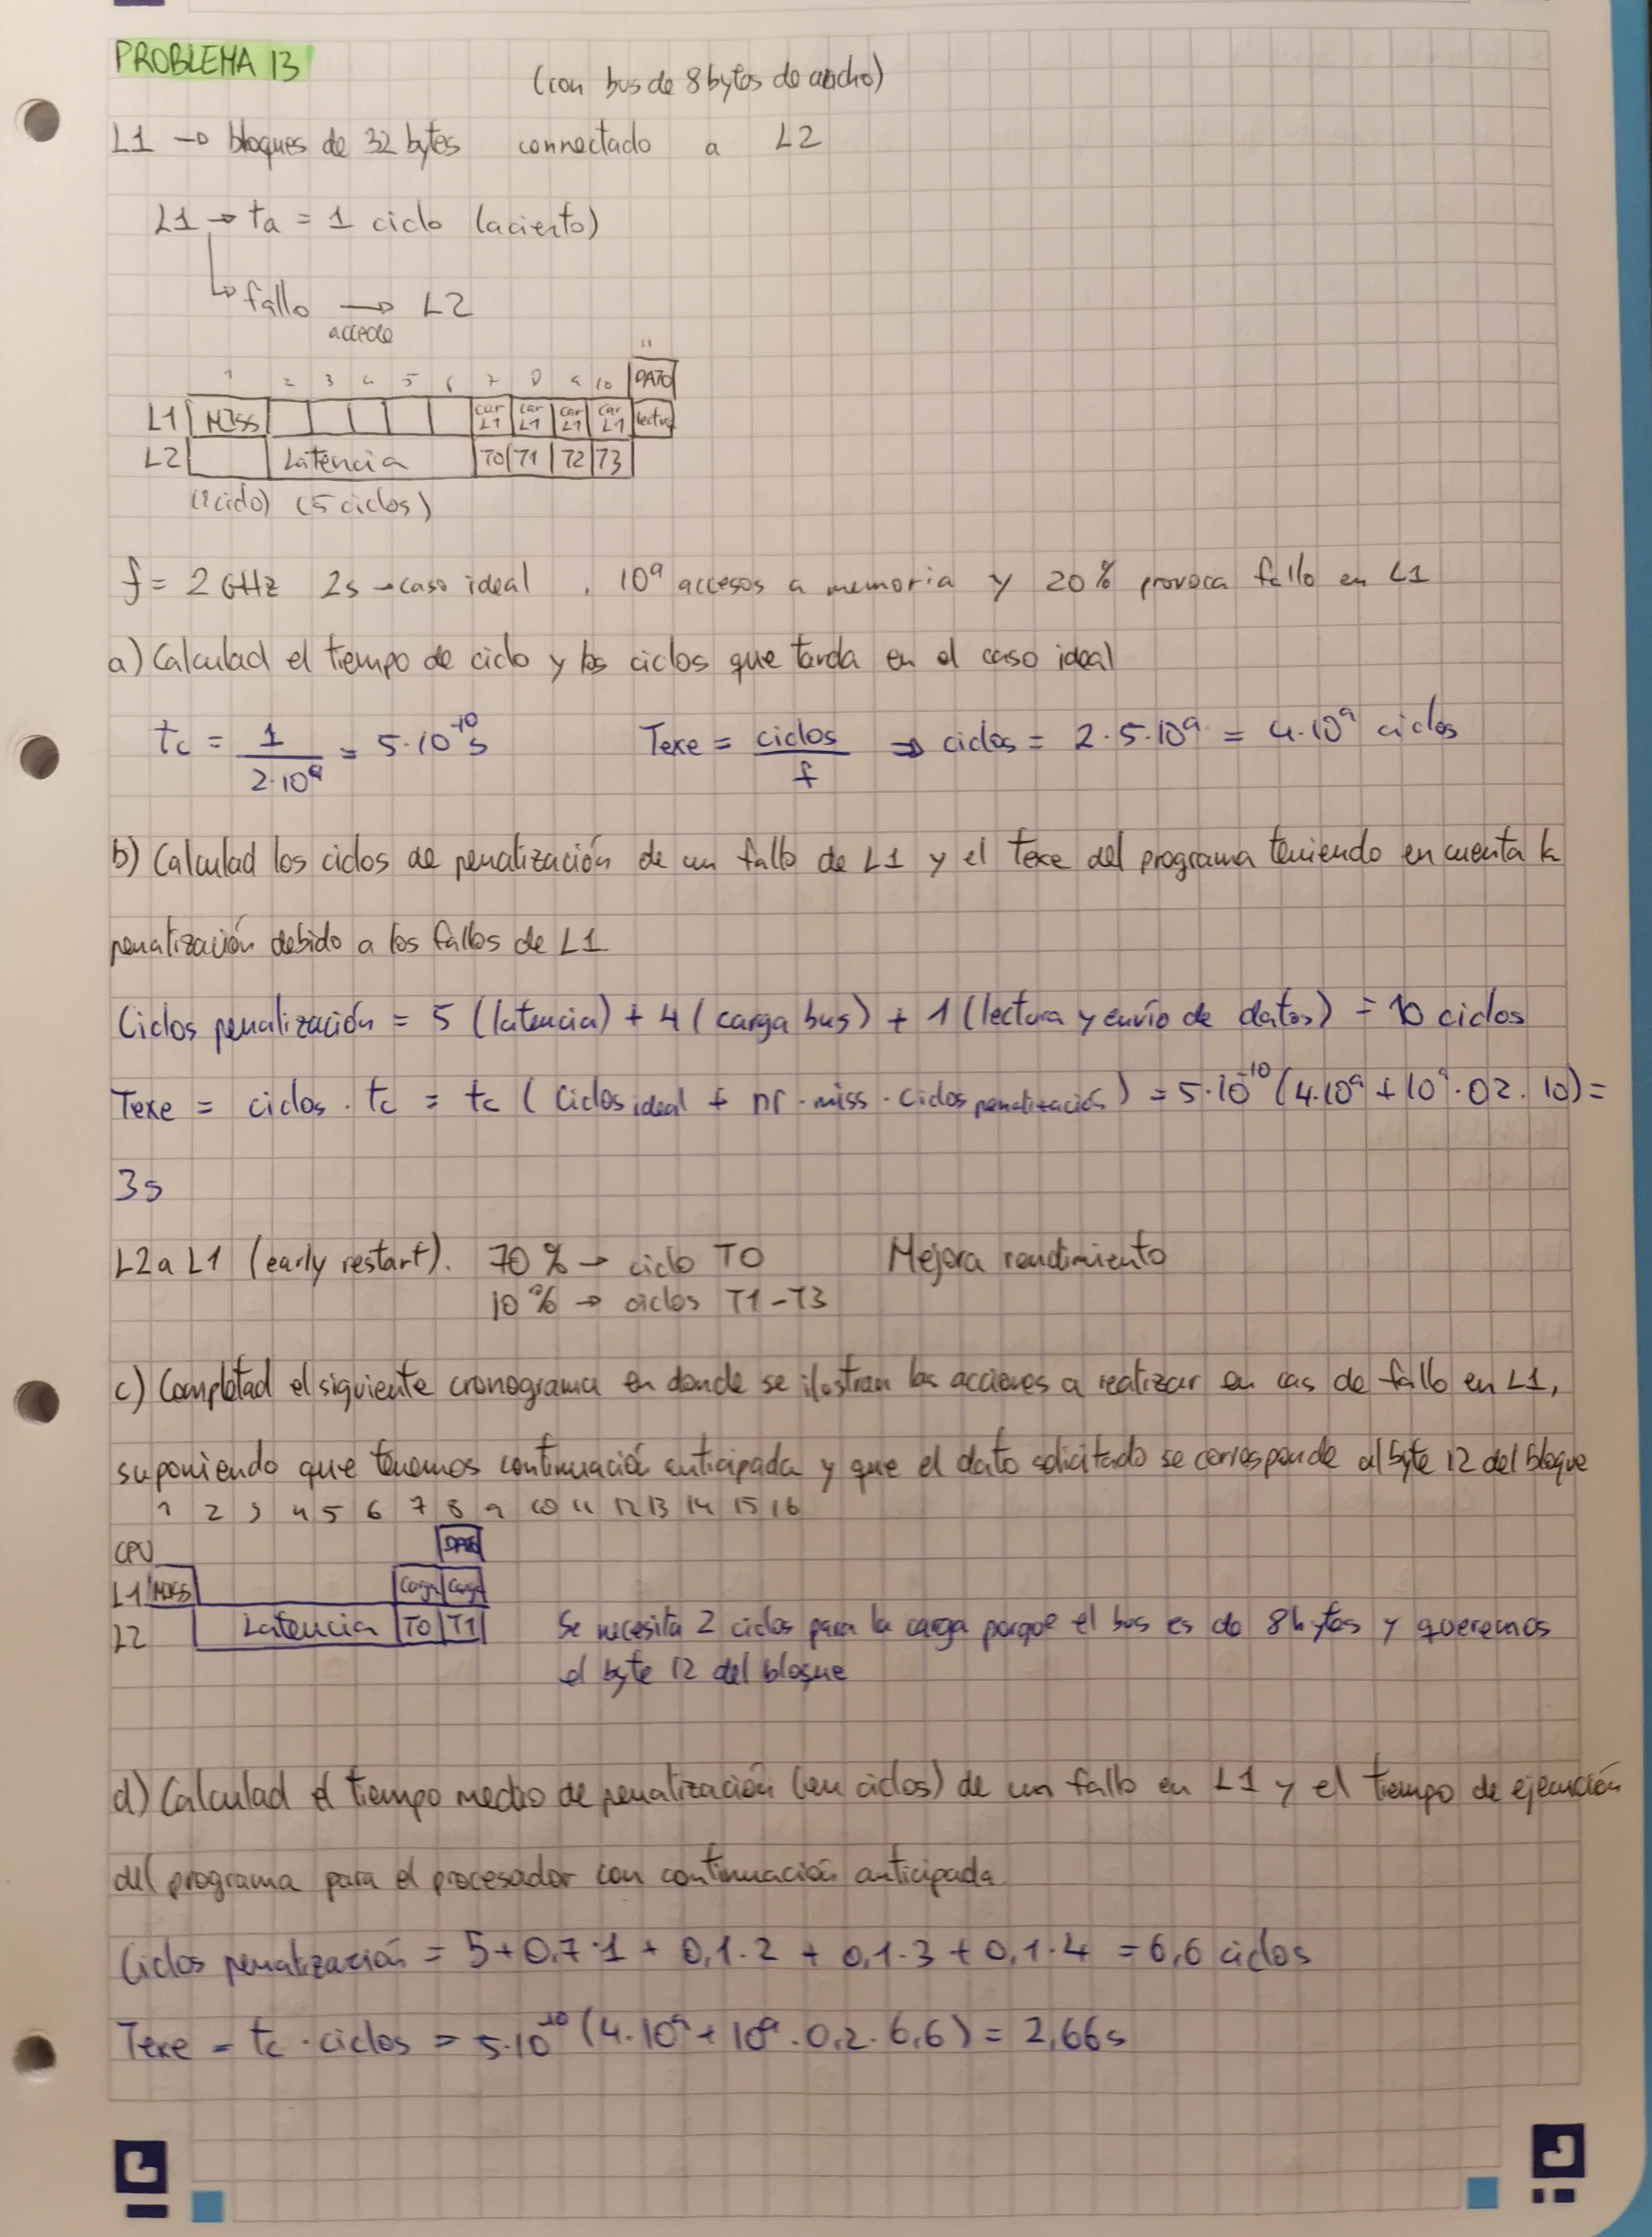 PROBLEMA 13
(con bus de 8 bytes de ancho)
L1 → bloques de 32 bytes connectado a L2
L1 → ta = 1 ciclo (acierto)
↳ fallo → L2
accede
11
1 2 3 4 5 6 7 8 9 10 DATO
L1 MISS car L1 car L1 car L1 car L1 lectura
L2 Latencia T0 T1 T2 T3
(1 ciclo) (5 ciclos)
f = 2 GHz 2s → caso ideal , 10⁹ accesos a memoria y 20% provoca fallo en L1
a) Calculad el tiempo de ciclo y los ciclos que tarda en el caso ideal
tc = 1 / 2·10⁹ = 5·10⁻¹⁰ s Texe = ciclos / f ⇒ ciclos = 2·5·10⁹ = 4·10⁹ ciclos
b) Calculad los ciclos de penalización de un fallo de L1 y el texe del programa teniendo en cuenta la
penalización debido a los fallos de L1.
Ciclos penalización = 5 (latencia) + 4 (carga bus) + 1 (lectura y envío de datos) = 10 ciclos
Texe = ciclos · tc = tc (ciclos ideal + nr · miss · ciclos penalización) = 5·10⁻¹⁰ (4·10⁹ + 10⁹ · 02 · 10) =
3s
L2 a L1 (early restart). 70% → ciclo T0 Mejora rendimiento
10% → ciclos T1-T3
c) Completad el siguiente cronograma en donde se ilostran las acciones a realizar en cas de fallo en L1,
suponiendo que tenemos continuación anticipada y que el dato solicitado se corresponde al byte 12 del bloque
1 2 3 4 5 6 7 8 9 10 11 12 13 14 15 16
CPU DATO
L1 MISS Carga Carga
L2 Latencia T0 T1 Se necesita 2 ciclos para la carga porque el bus es de 8 bytes y queremos
el byte 12 del bloque
d) Calculad el tiempo medio de penalización (en ciclos) de un fallo en L1 y el tiempo de ejecución
del programa para el procesador con continuación anticipada
Ciclos penalización = 5 + 0,7·1 + 0,1·2 + 0,1·3 + 0,1·4 = 6,6 ciclos
Texe = tc · ciclos = 5·10⁻¹⁰ (4·10⁹ + 10⁹ · 0,2 · 6,6) = 2,66s